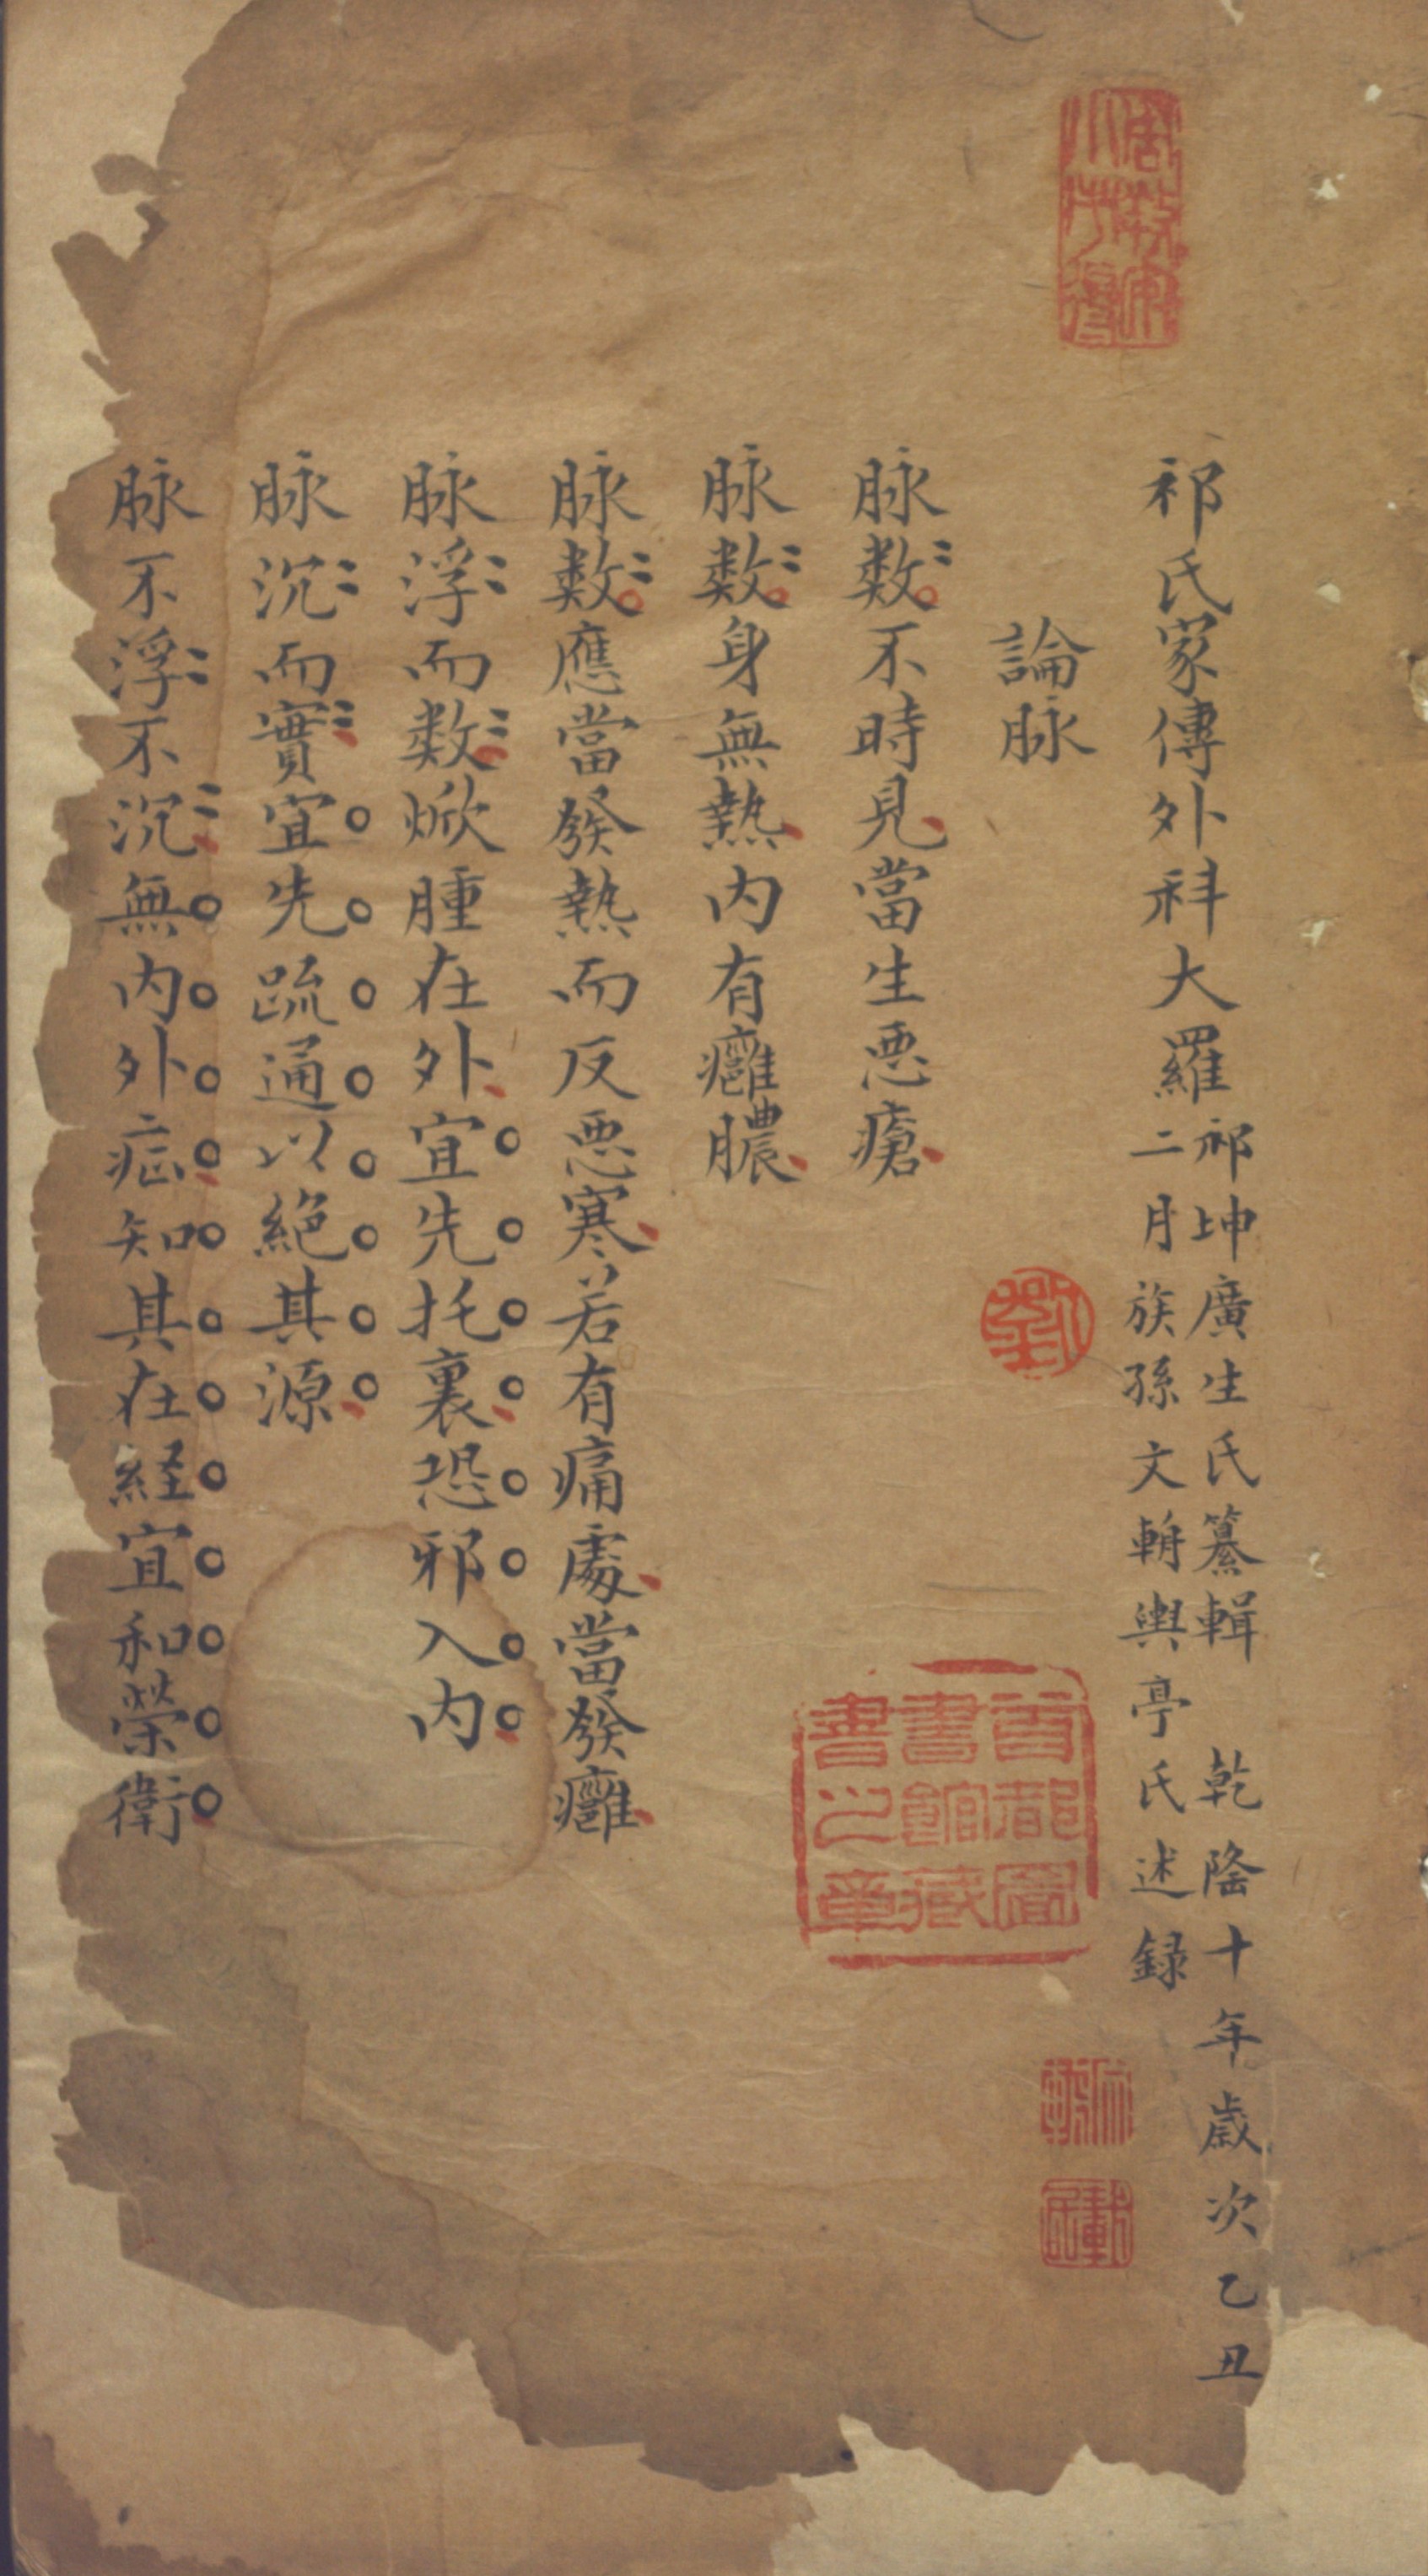 祁氏家傳外科大羅
祁坤廣生氏纂輯 乾隆十年歲次乙丑
二月族孫文輈輿亭氏述録
論脉
脉数不時見當生悪瘡
脉数身無熱内有癰膿
脉数應當發熱而反悪寒若有痛處當發癰
脉浮而数焮腫在外宜先托裏恐邪入内
脉沉而實宜先疏通以絶其源
脉不浮不沉無内外症知其在経宜和榮衛
首都圖
書館藏
書之章